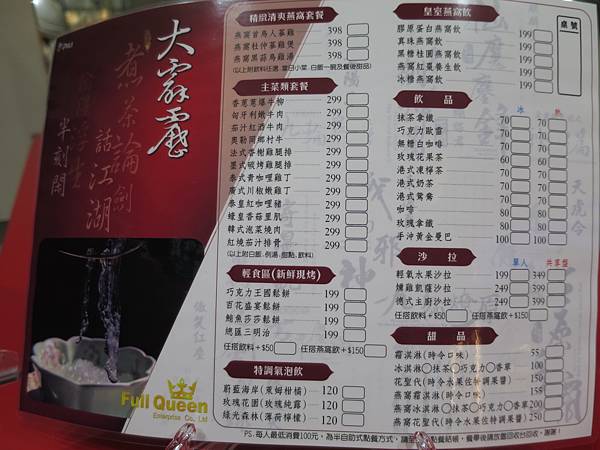 大霹靂
煮茶論劍
話江湖
半刻閒
Full Queen
Enterprise Co., Ltd
精緻清爽燕窩套餐
燕窩首烏人蔘雞 398
燕窩杜仲蔘雞煲 398
燕窩黑蒜烏雞湯 398
(以上附飲料任選.當日小菜.白飯一碗及餐後甜品)
主菜類套餐
香蔥蔥爆牛柳 299
匈牙利嫩牛肉 299
茄汁紅酒牛肉 299
奧勒岡鄉村牛 299
法式香榭雞腿排 299
墨式碳烤雞腿排 299
泰式青咖哩雞丁 299
廣式川椒嫩雞丁 299
泰皇紅咖哩豬 299
蠔皇香菇里肌 299
韓式泡菜燒肉 299
紅燒茄汁排骨 299
(以上附白飯.例湯.甜點.飲料)
輕食區(新鮮現烤)
巧克力王國鬆餅 199
百花盛宴鬆餅 199
鮪魚莎莎鬆餅 199
總匯三明治 199
任搭飲料+$50 任搭燕窩飲+$150
特調氣泡飲
蔚藍海岸(萊姆柑橘) 120
玫瑰花園(玫瑰純露) 120
綠光森林(薄荷檸檬) 120
皇室燕窩飲
膠原蛋白燕窩飲 199
真珠燕窩飲 199
黑糖桂圓燕窩飲 199
燕窩紅棗養生飲 199
冰糖燕窩飲 199
桌號
飲品
冰 熱
抹茶拿鐵 70 70
巧克力歐蕾 70 70
無糖白咖啡 70 70
玫瑰花果茶 60 60
港式凍檸茶 70 70
港式奶茶 70 70
港式鴛鴦 70 70
咖啡 80 80
玫瑰拿鐵 80 80
手沖黃金曼巴 100 100
沙拉
單人 共享盤
輕氧水果沙拉 199 349
燻雞凱薩沙拉 199 399
德式主廚沙拉 199 399
任搭飲料+$50 任搭燕窩飲+$150
甜品
霜淇淋(時令口味) 55
冰淇淋○抹茶○巧克力○香草 100
花聖代(時令水果佐特調果醬) 150
燕窩霜淇淋(時令口味) 150
燕窩冰淇淋○抹茶○巧克力○香草 200
燕窩花聖代(時令水果佐特調果醬) 250
PS.每人最低消費100元,為半自助式點餐方式,請至
點餐結帳,餐畢後請放置回收台回收,謝謝!